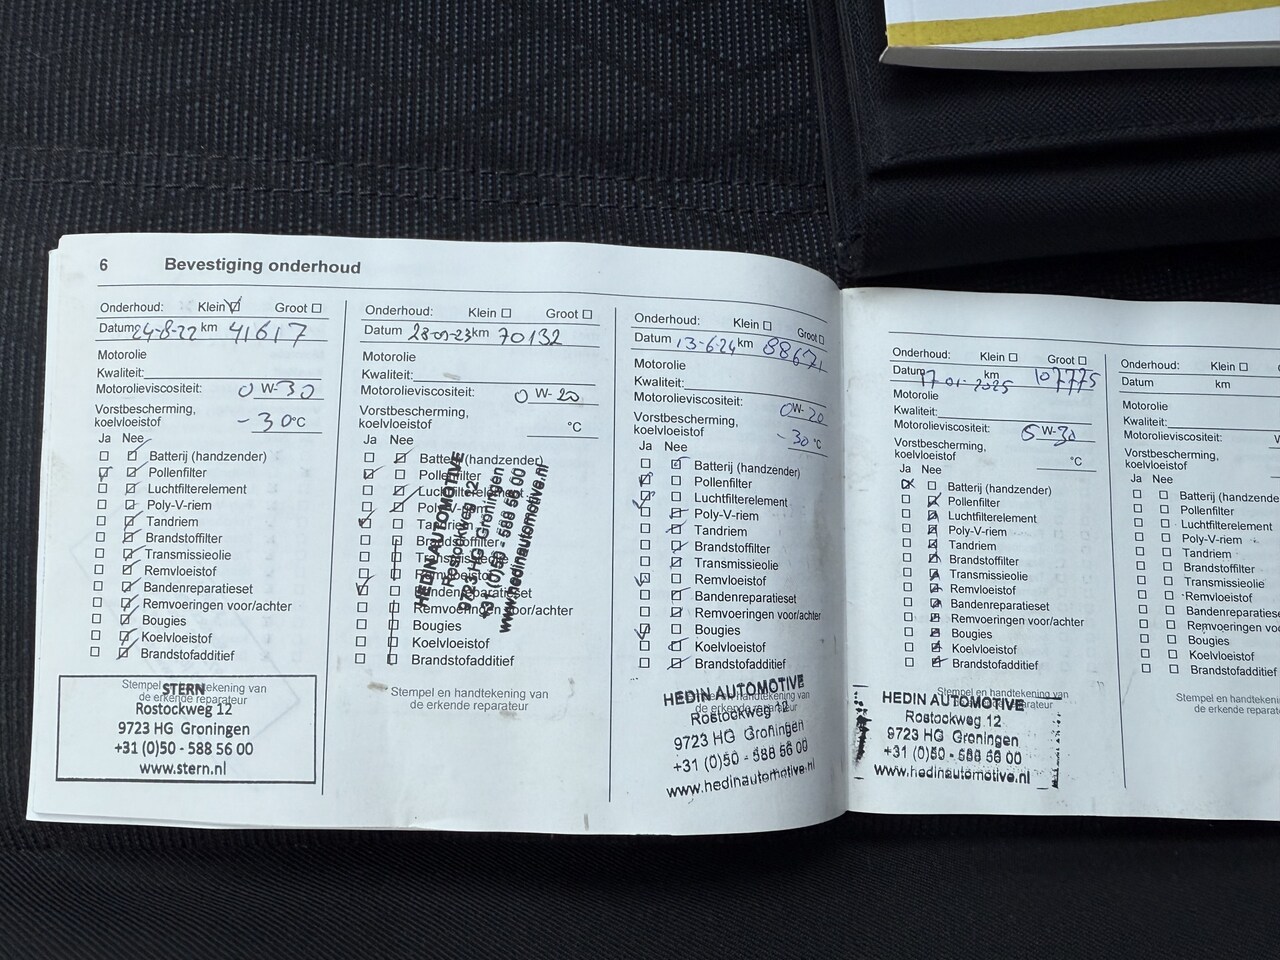 6 Bevestiging onderhoud
Onderhoud: Klein Groot
Datum 24-8-22 km 41617
Motorolie
Kwaliteit:
Motorolieviscositeit: 0 W-30
Vorstbescherming,
koelvloeistof -30°C
Ja Nee
Batterij (handzender)
Pollenfilter
Luchtfilterelement
Poly-V-riem
Tandriem
Brandstoffilter
Transmissieolie
Remvloeistof
Bandenreparatieset
Remvoeringen voor/achter
Bougies
Koelvloeistof
Brandstofadditief
Stempel en handtekening van
de erkende reparateur
STERN
Rostockweg 12
9723 HG Groningen
+31 (0)50 - 588 56 00
www.stern.nl
Onderhoud: Klein Groot
Datum km 70132
Motorolie
Kwaliteit:
Motorolieviscositeit: 0 W-20
Vorstbescherming,
koelvloeistof °C
Ja Nee
Batterij (handzender)
Pollenfilter
Luchtfilterelement
Poly-V-riem
Tandriem
Brandstoffilter
Transmissieolie
Remvloeistof
Bandenreparatieset
Remvoeringen voor/achter
Bougies
Koelvloeistof
Brandstofadditief
HEDIN AUTOMOTIVE
Rostockweg 12
9723 HG Groningen
+31 (0)50 - 588 56 00
www.hedinautomotive.nl
Stempel en handtekening van
de erkende reparateur
Onderhoud: Klein Groot
Datum 13-6-24 km 88671
Motorolie
Kwaliteit:
Motorolieviscositeit:
0W-20
Vorstbescherming,
koelvloeistof -30°C
Ja Nee
Batterij (handzender)
Pollenfilter
Luchtfilterelement
Poly-V-riem
Tandriem
Brandstoffilter
Transmissieolie
Remvloeistof
Bandenreparatieset
Remvoeringen voor/achter
Bougies
Koelvloeistof
Brandstofadditief
Stempel en handtekening van
de erkende reparateur
HEDIN AUTOMOTIVE
Rostockweg 12
9723 HG Groningen
+31 (0)50 - 588 56 00
www.hedinautomotive.nl
Onderhoud: Klein Groot
Datum 17 01-2025 km 107775
Motorolie
Kwaliteit:
Motorolieviscositeit: 5 W-30
Vorstbescherming,
koelvloeistof °C
Ja Nee
Batterij (handzender)
Pollenfilter
Luchtfilterelement
Poly-V-riem
Tandriem
Brandstoffilter
Transmissieolie
Remvloeistof
Bandenreparatieset
Remvoeringen voor/achter
Bougies
Koelvloeistof
Brandstofadditief
Stempel en handtekening van
de erkende reparateur
HEDIN AUTOMOTIVE
Rostockweg 12
9723 HG Groningen
+31 (0)50 - 588 56 00
www.hedinautomotive.nl
Onderhoud: Klein
Datum km
Motorolie
Kwaliteit:
Motorolieviscositeit:
Vorstbescherming,
koelvloeistof
Ja Nee
Batterij (handzende
Pollenfilter
Luchtfilterelement
Poly-V-riem
Tandriem
Brandstoffilter
Transmissieolie
Remvloeistof
Bandenreparatie
Remvoeringen vo
Bougies
Koelvloeistof
Brandstofadditief
Stempel en handteken
de erkende repara